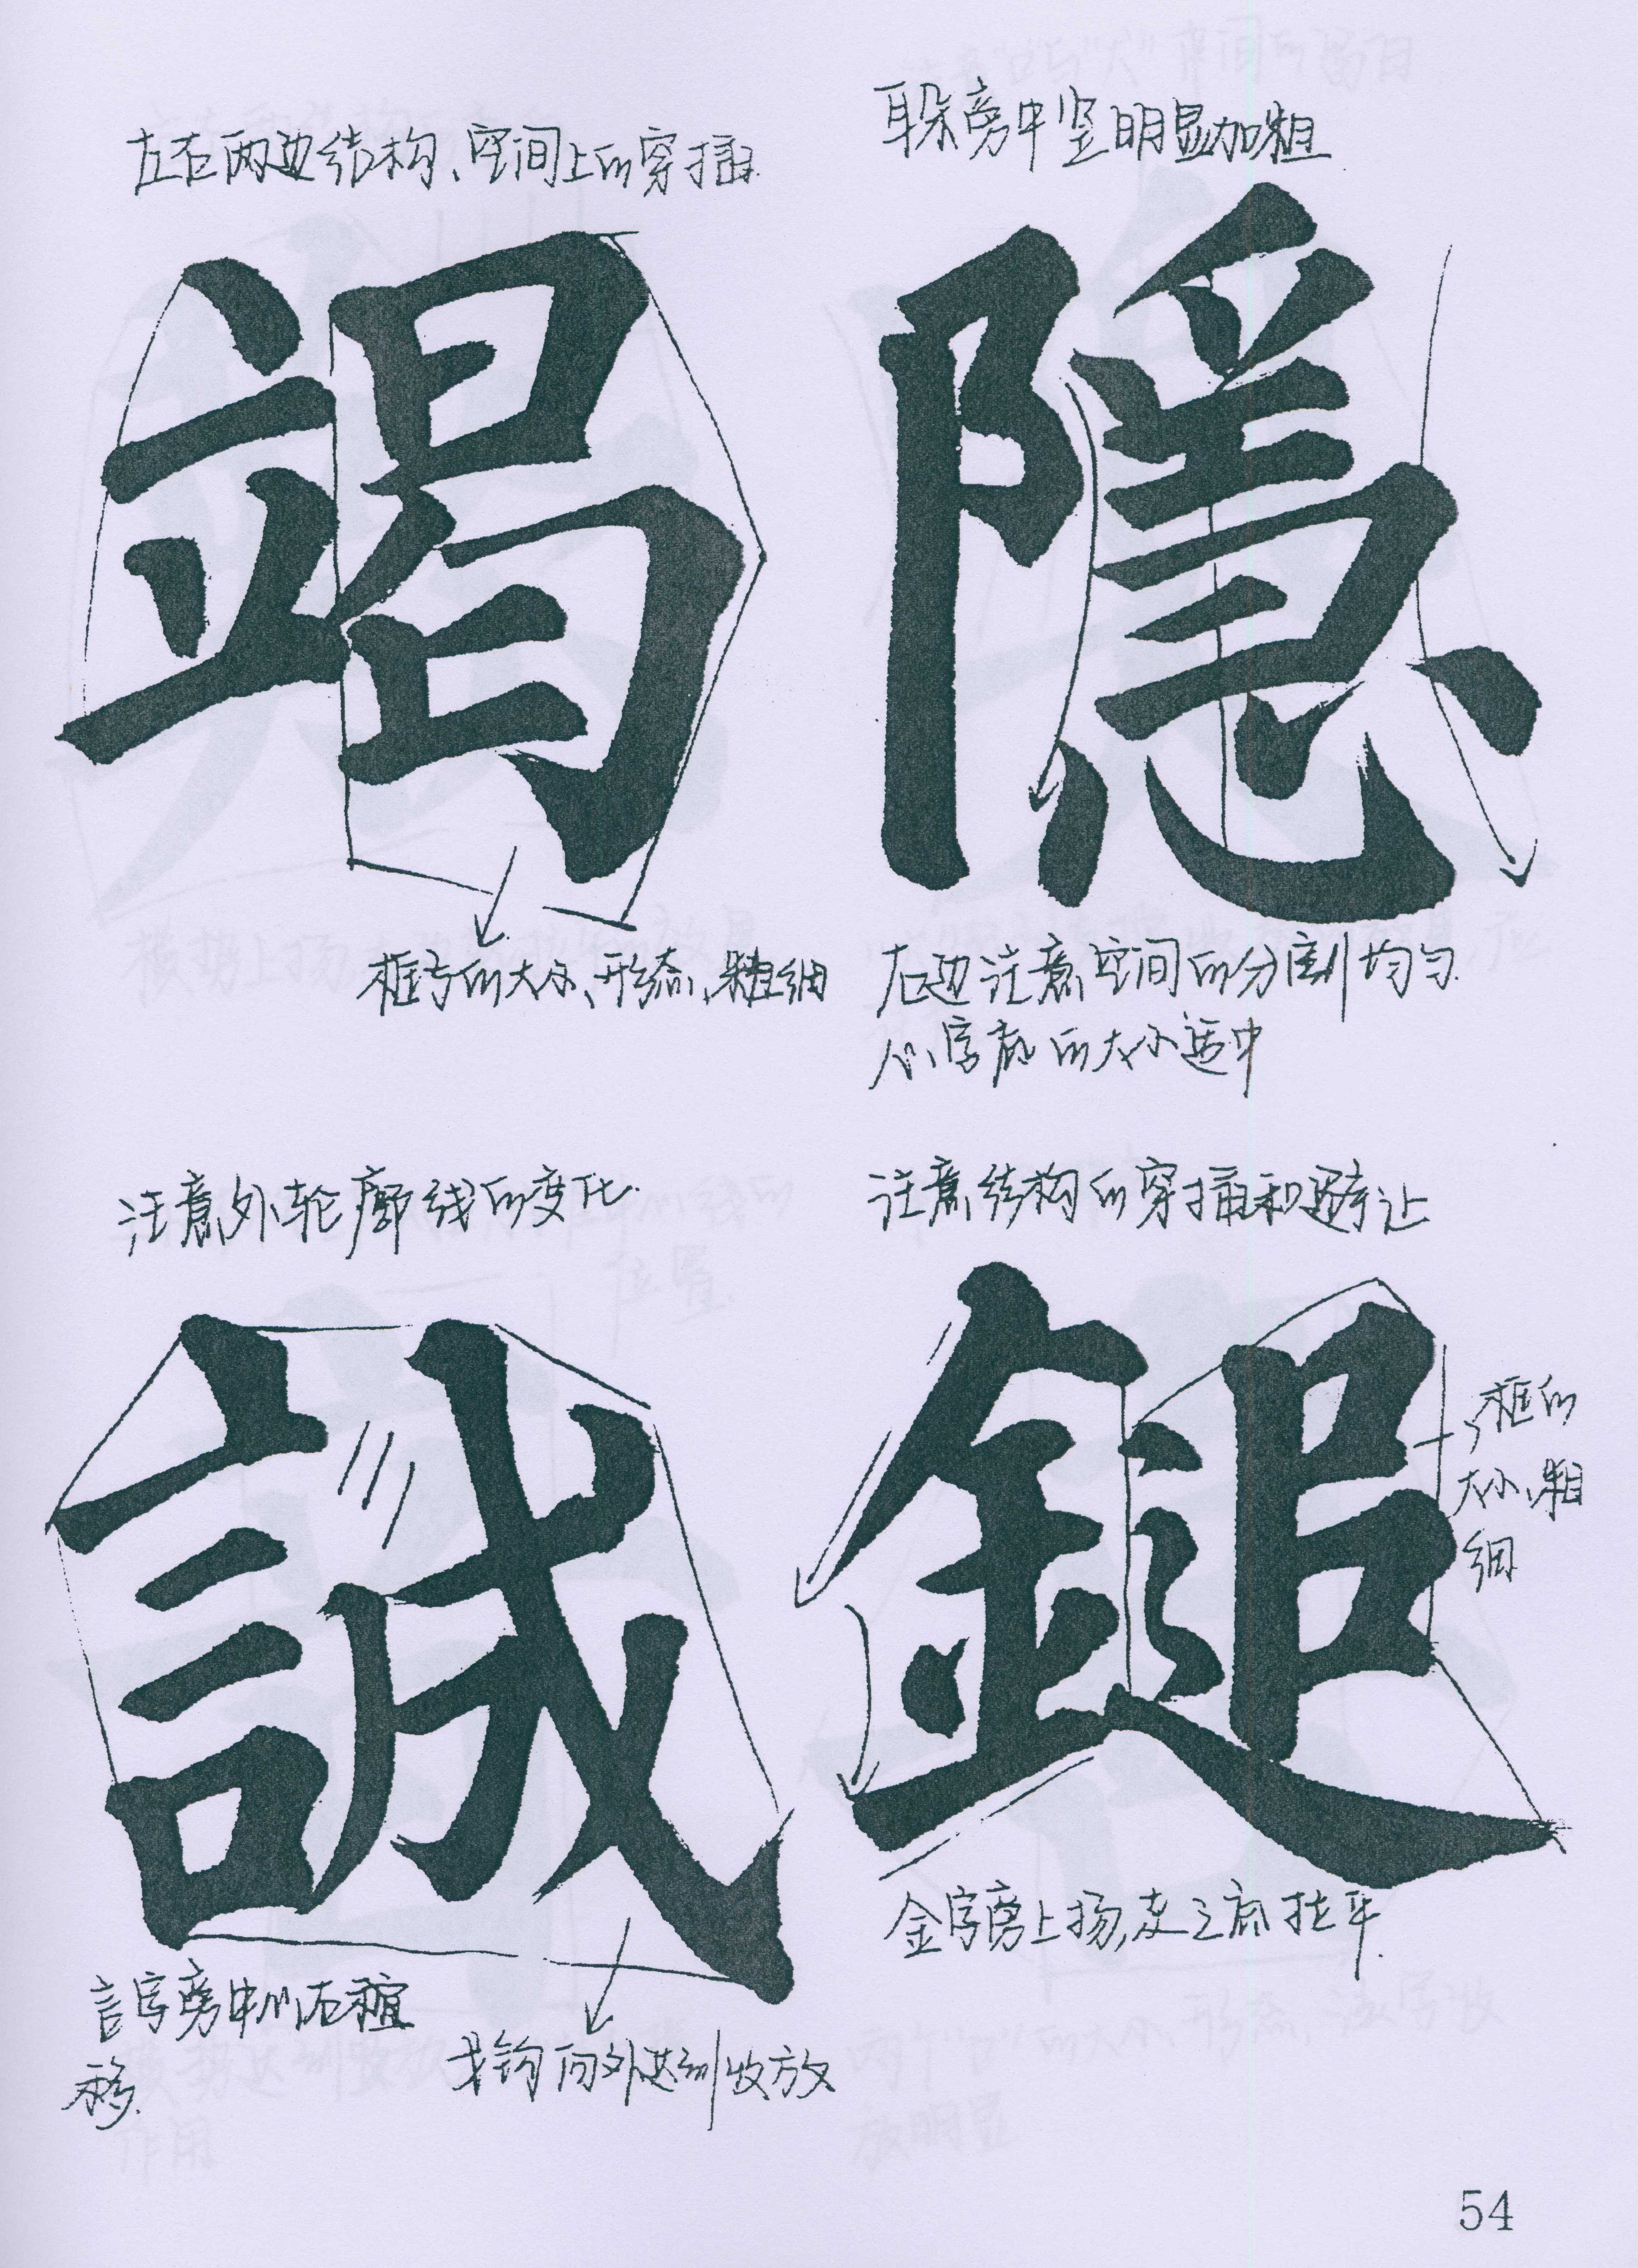 左右两边结构、空间上的穿插
竭
框号的大小、形态、粗细
耳朵旁中竖明显加粗
隱
右边注意空间的分割均匀
心字底的大小适中
注意外轮廓线的变化
誠
言字旁中心右稍
移
戈钩向外达到收放
注意结构的穿插和避让
鎚
框的
大小、粗
细
金字旁上扬,走之底托平
54